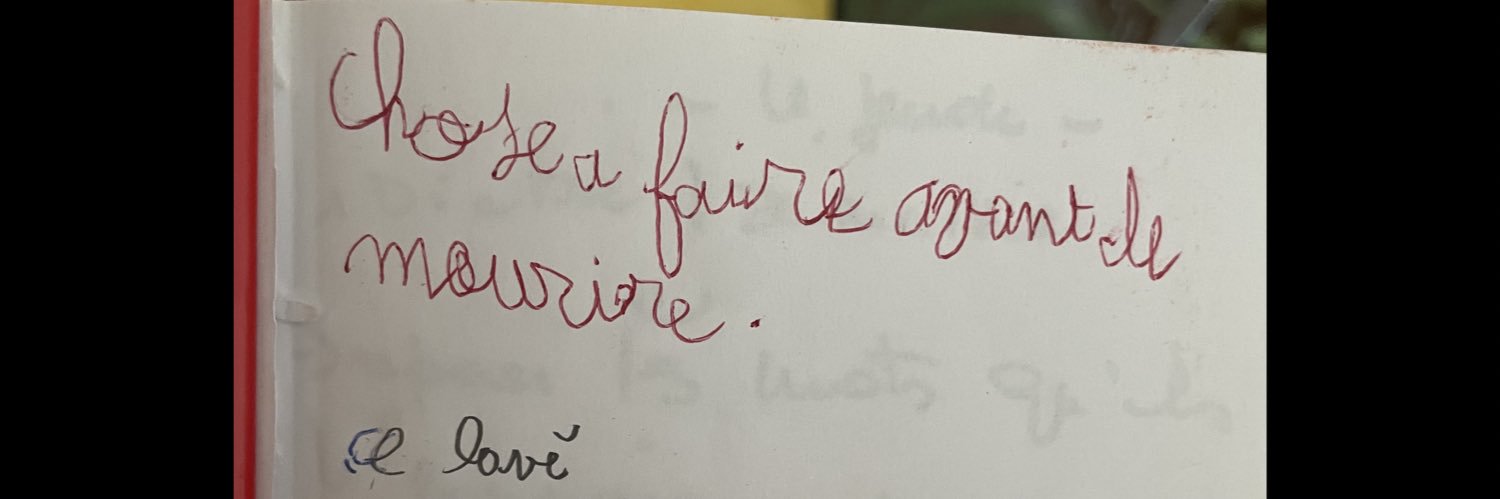 Chose a faire avant de
mourire.
se lavé